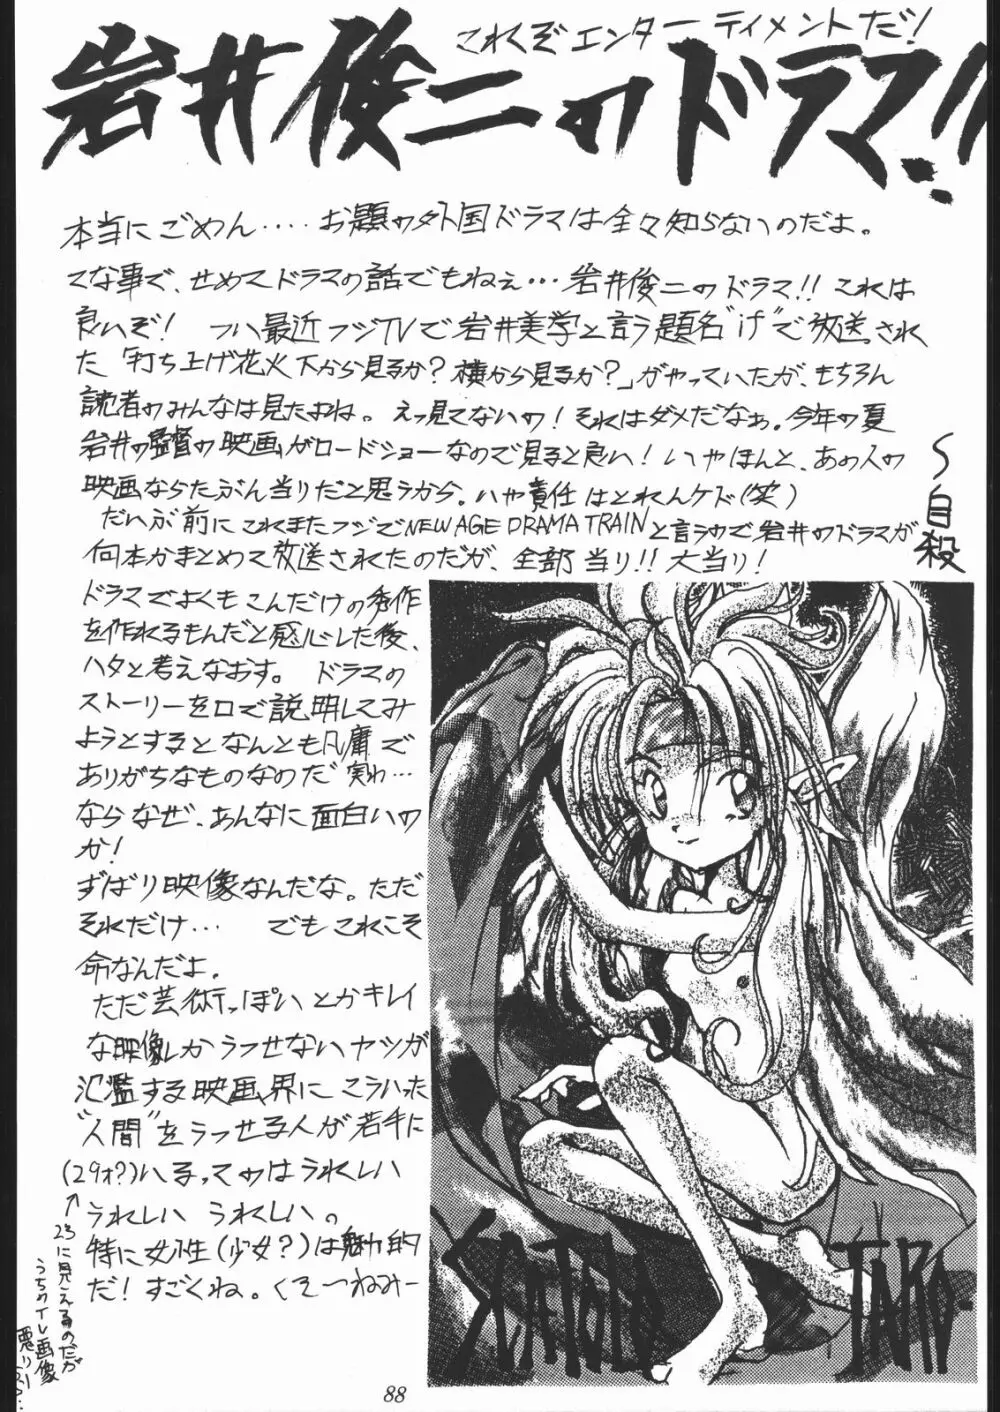 これぞエンターティメントだ!
岩井俊二のドラマ!!
本当にごめん‥‥お題の外国ドラマは全々知らないのだよ。
てな事で、せめてドラマの話でもねぇ…岩井俊二のドラマ!! これは
良いぞ! つい最近フジTVで岩井美学と言う題名"げ"で放送され
た「打ち上げ花火下から見るか?横から見るか?」がやっていたが、もちろん
読者のみんなは見たよね。えっ見てないの!それはダメだなぁ。今年の夏
岩井の監督の映画がロードショーなので見ると良い! いやほんと、あの人の
映画ならたぶん当りだと思うから。いや責任はとれんケド(笑)
だいぶ前にこれまたフジでNEW AGE DRAMA TRAINと言うので岩井のドラマが
何本かまとめて放送されたのだが、全部当り!!大当り!
〜自殺
ドラマでよくもこんだけの秀作
を作れるもんだと感心した後、
ハタと考えなおす。ドラマの
ストーリーを口で説明してみ
ようとするとなんとも凡庸で
ありがちなものなのだ実わ…
ならなぜ、あんなに面白いの
か!
ずばり映像なんだな。ただ
それだけ… でもこれこそ
命なんだよ。
ただ芸術っぽいとかキレイ
な映像しかうつせないヤツが
氾濫する映画界にこういった
"人間"をうつせる人が若手に
(29才?)いる、てのはうれしい
うれしい うれしい。
特に女性(少女?)は魅力的
だ!すごくね。くそーねみー
↑23に見えるのだが
うちのTV画像
悪いし
SCATOLO
TARO-
88